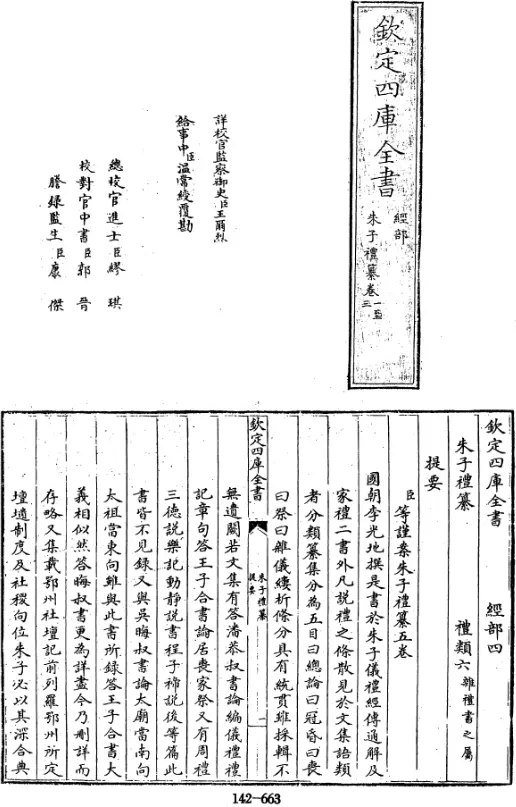 欽定四庫全書
經部
朱子禮纂卷一至三
詳校官監察御史臣王爾烈
給事中臣溫常綬覆勘
總校官進士臣繆琪
校對官中書臣郭晉
謄錄監生臣康傑
欽定四庫全書 經部四
朱子禮纂 禮類六雜禮書之屬
提要
臣等謹案朱子禮纂五卷
國朝李光地撰是書於朱子儀禮經傳通解及
家禮二書外凡說禮之條散見於文集語類
者分類纂集分為五目曰總論曰冠昏曰喪
曰祭曰雜儀縷析條分具有統貫雖採輯不
欽定四庫全書
朱子禮纂
提要
一
無遺闕若文集有答潘恭叔書論編儀禮禮
記章句答王子合書論居喪家祭又有周禮
三德說樂記動靜說書程子禘說後等篇此
書皆不見錄又與吳晦叔書論太廟當南向
太祖當東向雖與此書所錄答王子合書大
義相似然答晦叔書更為詳盡今乃刪詳而
存略又集載鄂州社壇記前列羅鄂州所定
壇壝制度及社稷向位朱子必以其深合典
142-663